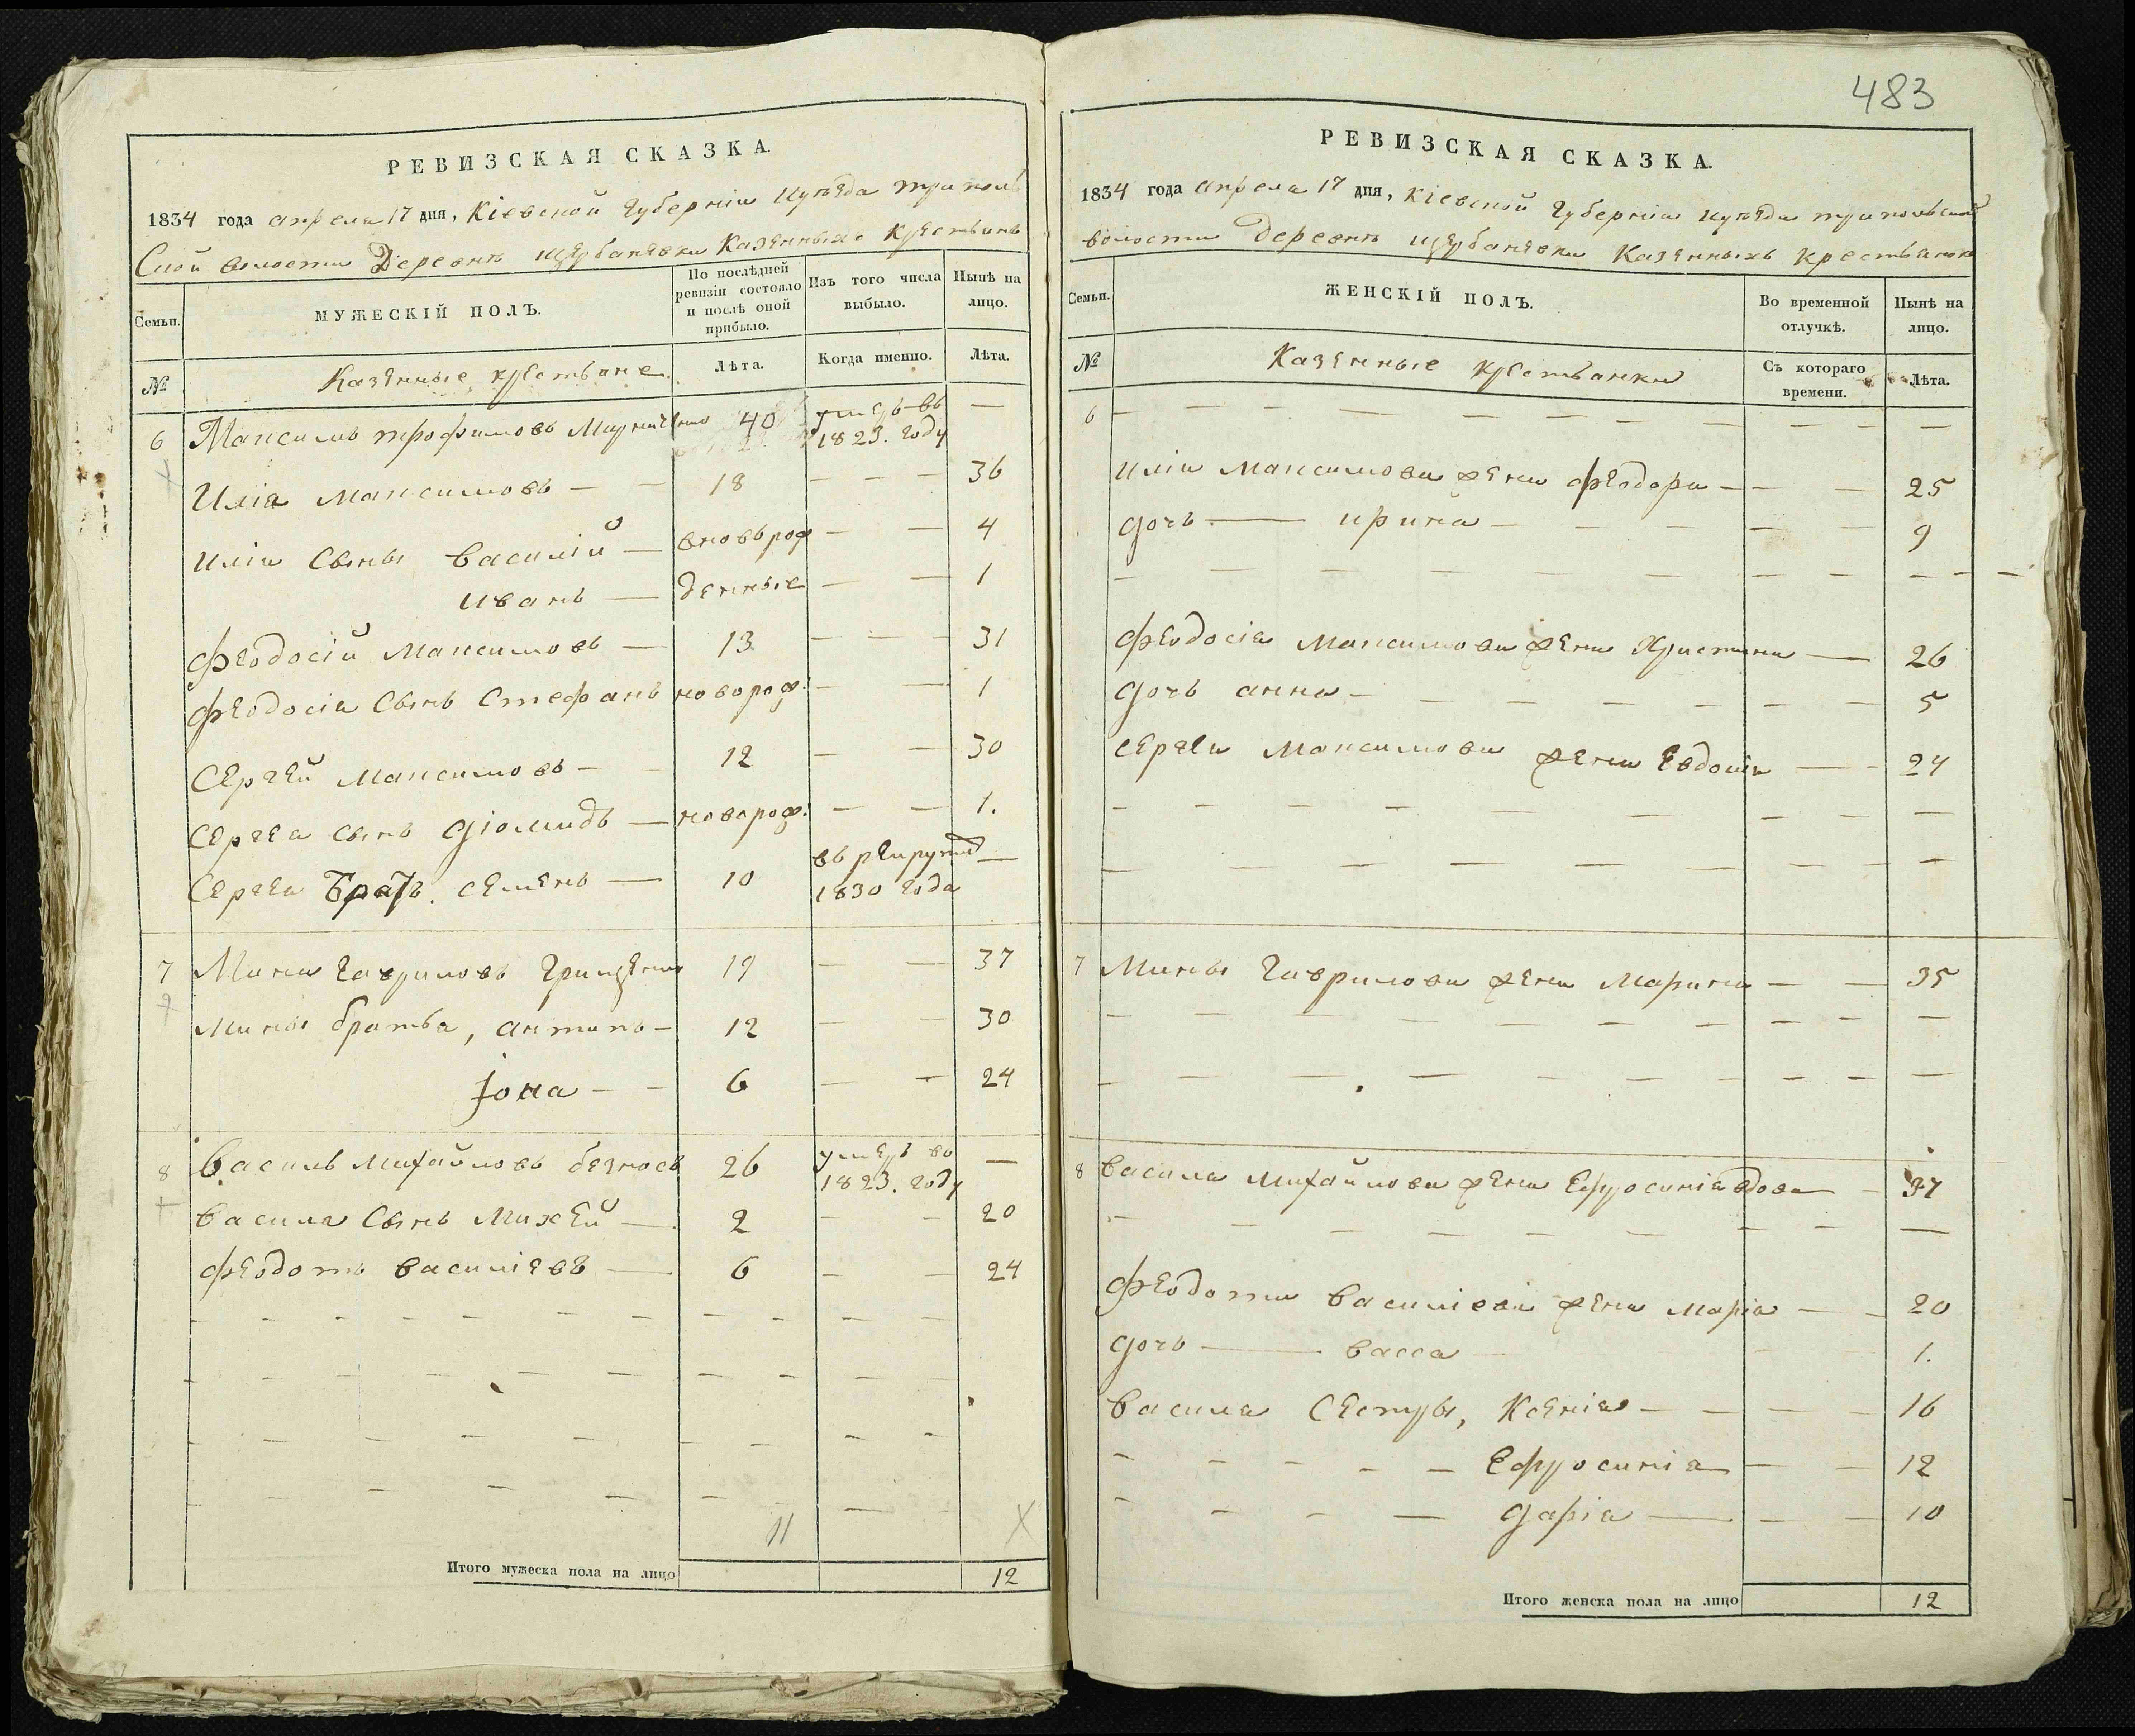 483
РЕВИЗСКАЯ СКАЗКА.
1834 года апреля 17 дня, Кіевской Губерніи и уезда триполь
Ской волости Деревнѣ щербанѣвки Казенныхъ Крестьянъ
Семьи.
МУЖЕСКІЙ ПОЛЪ.
По послѣдней ревизіи состояло и послѣ оной прибыло.
Изъ того числа выбыло.
Нынѣ на лицо.
№
Казенные крестьяне.
Лѣта.
Когда именно.
Лѣта.
6 Максимъ трофимовъ 40 умеръ въ 1823. году —
Илія Максимовъ — — 18 — — — 36
Иліи Сыны Василій — вновь рож — — 4
иванъ — денные — — 1
Феодосій Максимовъ — 13 — — — 31
Феодосія Сынъ Стефанъ новорож. — — 1
Сергей Максимовъ — 12 — — 30
Сергея сынъ Діомидъ — новорож. — — 1.
Сергея Братъ. семенъ — 10 въ рекруты 1830 года —
7 Мина Гавриловъ Грищенко 19 — — 37
Мины братья, антипъ — 12 — — 30
Іона — — 6 — — 24
8 Василь Михайловъ безносъ 26 умеръ въ 1823. году —
Василя Сынъ Михей — 2 — — 20
Феодотъ Василіевъ — 6 — — 24
11
Итого мужеска пола на лицо 12
РЕВИЗСКАЯ СКАЗКА.
1834 года апреля 17 дня, Кіевской Губерніи и уезда трипольской
волости Деревнѣ щербанѣвки Казенныхъ крестьянокъ
Семьи.
ЖЕНСКІЙ ПОЛЪ.
Во временной отлучкѣ.
Нынѣ на лицо.
№
Казенные крестьянки
Съ котораго времени.
Лѣта.
6 — — — — — — — — — —
Иліи Максимова жена феодора — — — 25
Дочь — ирина — — — — — 9
Феодосія Максимова жена Христина — 26
Дочь анна — — — — — — 5
Сергея Максимова жена Евдокія — 24
7 Мины Гаврилова жена Марина — — 35
8 Василя Михайлова жена Ефросинія вдова — 37
Феодота Василіева жена Марія — — 20
Дочь — Васса — 1.
Василя Сестры, Ксенія — — — — 16
— — — — — Ефросинія — — 12
— — — — Дарія — — — 10
Итого женска пола на лицо 12